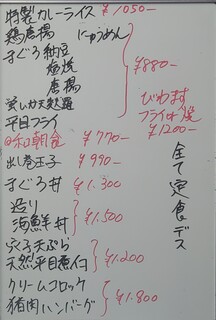 特製カレーライス ¥1050-
鶏唐揚 にゅうめん
まぐろ納豆
塩焼
唐揚
¥880-
平目フライ
びわます
フライor焼
¥1200-
日の和朝食 ¥770-
出し巻玉子 ¥990-
まぐろ丼 ¥1.300
造り
海鮮丼
¥1.500
穴子天ぷら
天然平目煮付
¥1.200
クリームコロッケ
猪肉ハンバーグ
¥1.800
全て定食デス